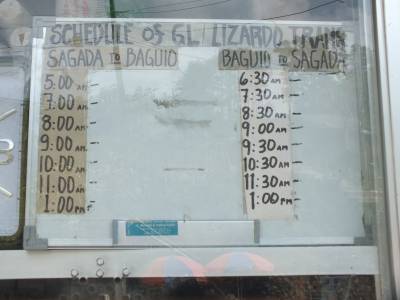 SCHEDULE OF GL LIZARDO TRANS
SAGADA TO BAGUIO
5:00 AM -
7:00 AM -
8:00 AM -
9:00 AM -
10:00 AM -
11:00 AM -
1:00 PM -
BAGUIO TO SAGADA
6:30 AM -
7:30 AM -
8:30 AM -
9:00 AM -
9:30 AM -
10:30 AM -
11:30 AM -
1:00 PM -